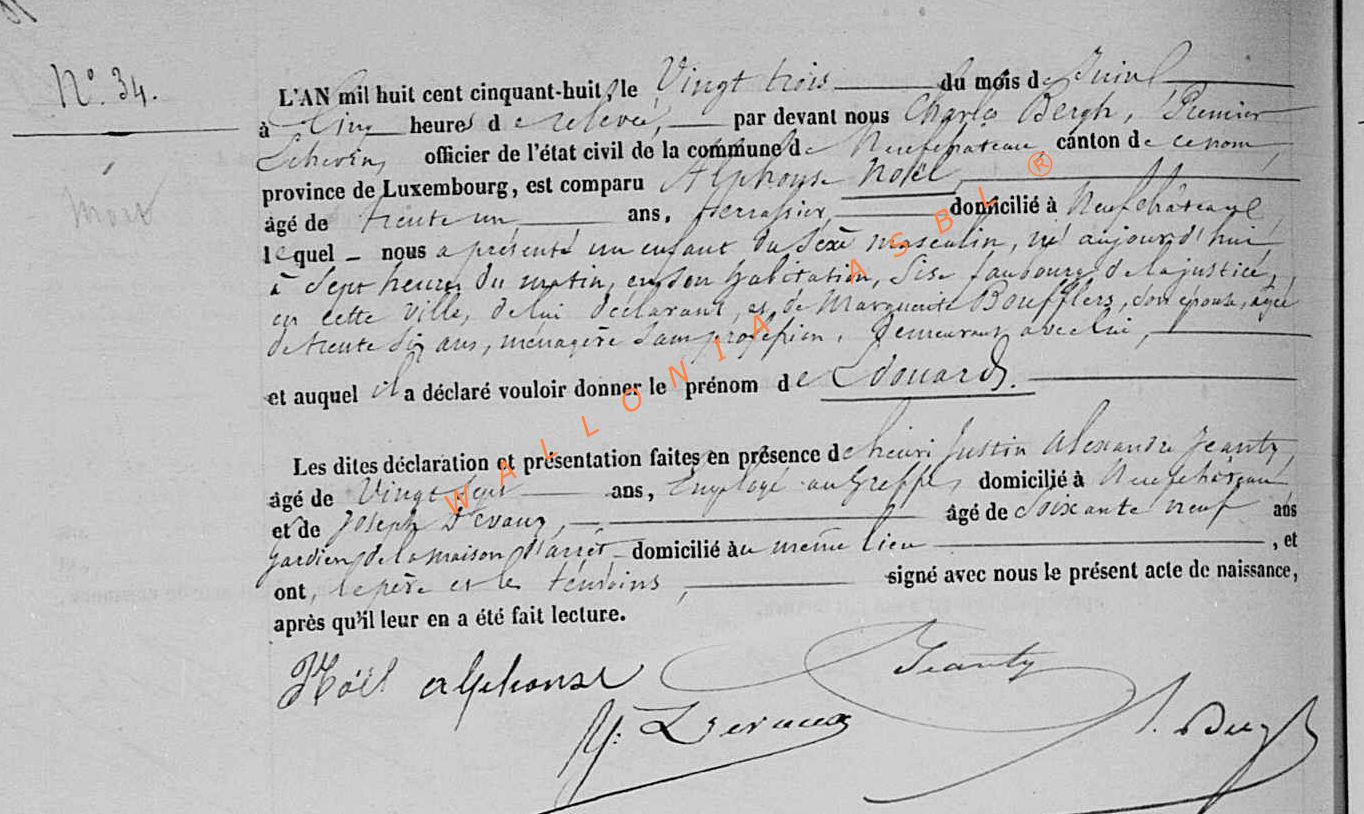 N° 34.
L'AN mil huit cent cinquant-huit, le Vingt trois du mois de Juin
à Cinq heures de relevée, par devant nous Charles Bergh, Premier
Echevin, officier de l'état civil de la commune de Neufchateau, canton de ce nom,
province de Luxembourg, est comparu Alphonse Noël,
mort
âgé de trente un ans, terrassier, domicilié à Neufchâteau,
lequel nous a présenté un enfant du sexe masculin, né aujourd'hui
à Sept heures du matin, en son habitation, Sise faubourg de la justice,
en cette Ville, de lui déclarant, et de Marguerite Boufflers, son épouse, agée
de trente six ans, ménagère sans profession, Demeurant avec lui,
et auquel il a déclaré vouloir donner le prénom de Edouard.
Les dites déclaration et présentation faites en présence de henri Justin Alexandre Jeanty,
âgé de Vingt Sept ans, Employé au Greffe, domicilié à Neufchâteau
et de Joseph Devaux, âgé de Soixante neuf ans
gardien de la maison d'arrêt domicilié au même lieu, et
ont, le père et les témoins, signé avec nous le présent acte de naissance,
après qu'il leur en a été fait lecture.
Noël alphonse
Jeanty
Devaux
WALLONIA ASBL ®